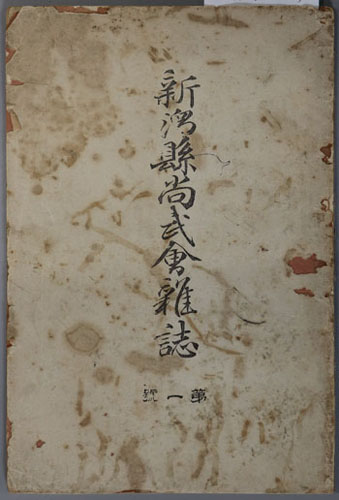 新潟縣尚武會雜誌
第一號